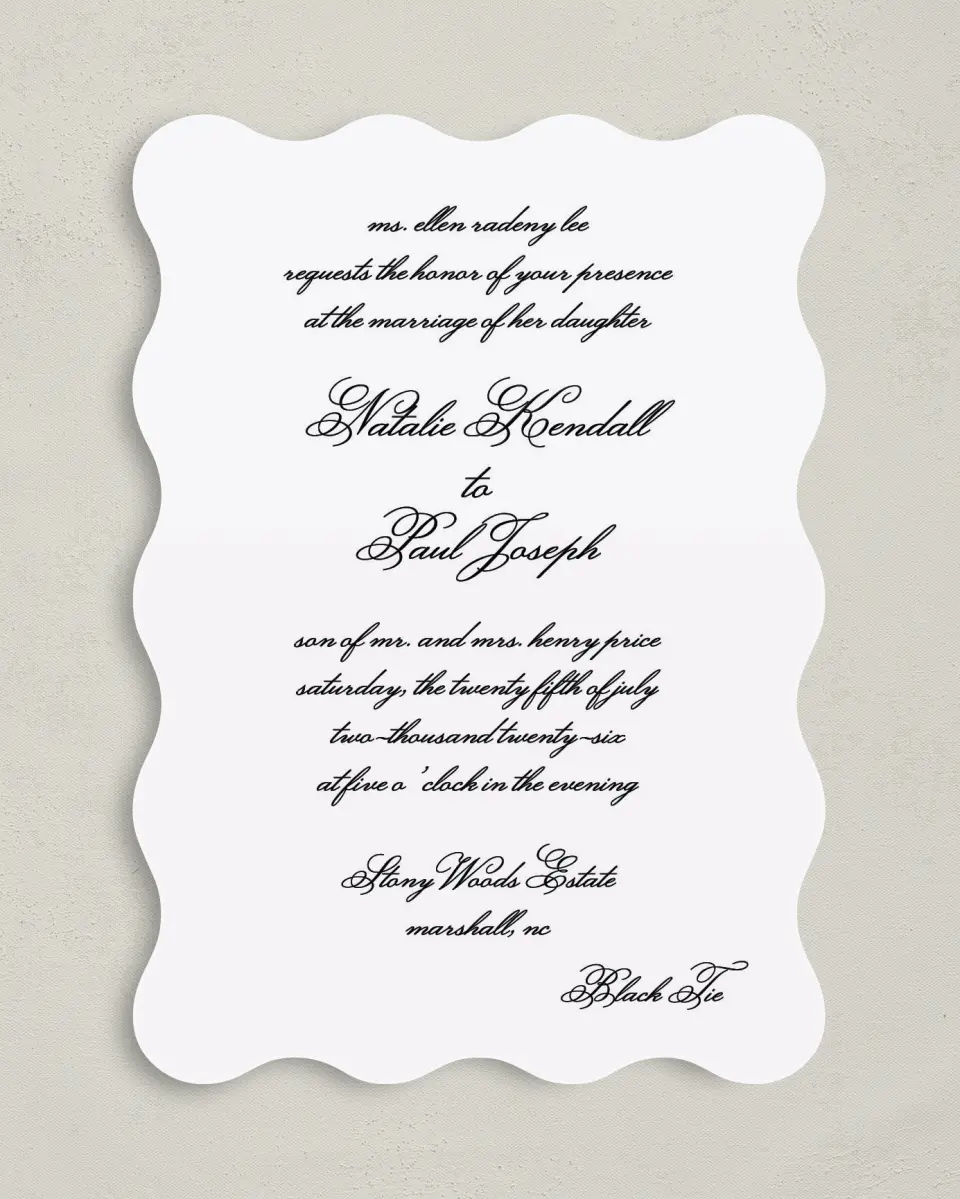 ms. ellen radeny lee
requests the honor of your presence
at the marriage of her daughter
Natalie Kendall
to
Paul Joseph
son of mr. and mrs. henry price
saturday, the twenty fifth of july
two-thousand twenty-six
at five o 'clock in the evening
Stony Woods Estate
marshall, nc
Black Tie